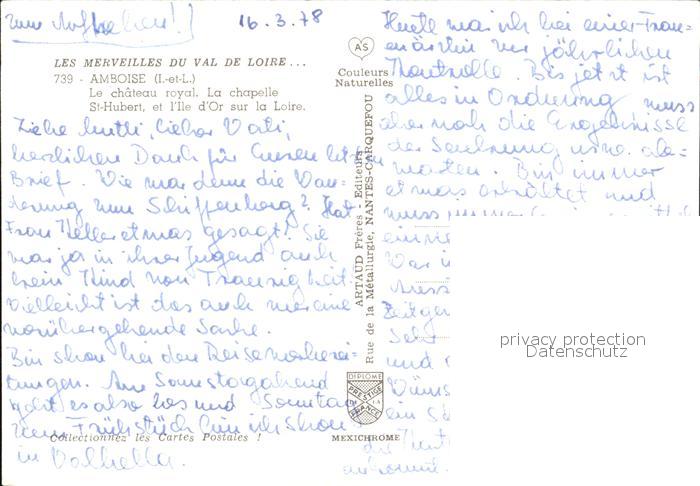 zum Aufheben!
16.3.78
LES MERVEILLES DU VAL DE LOIRE...
739 - AMBOISE (I.-et-L.)
Le château royal. La chapelle
St-Hubert, et l'Ile d'Or sur la Loire.
Liebe Mutti, lieber Vati,
herzlichen Dank für Eueren letzten
Brief. Wie war denn die Wan-
derung zum Schiffenberg? Hat
Frau Keller etwas gesagt? Sie
war ja in ihrer Jugend auch
kein Kind von Traurigkeit.
Vielleicht ist das auch nur eine
vorübergehende Sache.
Bin schon bei den Reisevorberei-
tungen. Am Samstagabend
geht es also los und Sonntag
zum Frühstück bin ich schon
in Valhella.
Collectionnez les Cartes Postales !
AS
Couleurs
Naturelles
ARTAUD Frères - Editeurs
Rue de la Métallurgie, NANTES-CARQUEFOU
DIPLOME
PRESTIGE
DE LA
FRANCE
MEXICHROME
Heute war ich bei einer Frau-
enärztin zur jährlichen
Kontrolle. Bis jetzt ist
alles in Ordnung, muss
aber noch die Ergebnisse
der Senkung usw. ab-
warten. Bin immer
etwas erkältet und
muss
Zeitge
Seh
und
Wüns
ein
die
ankommt.
privacy protection
Datenschutz